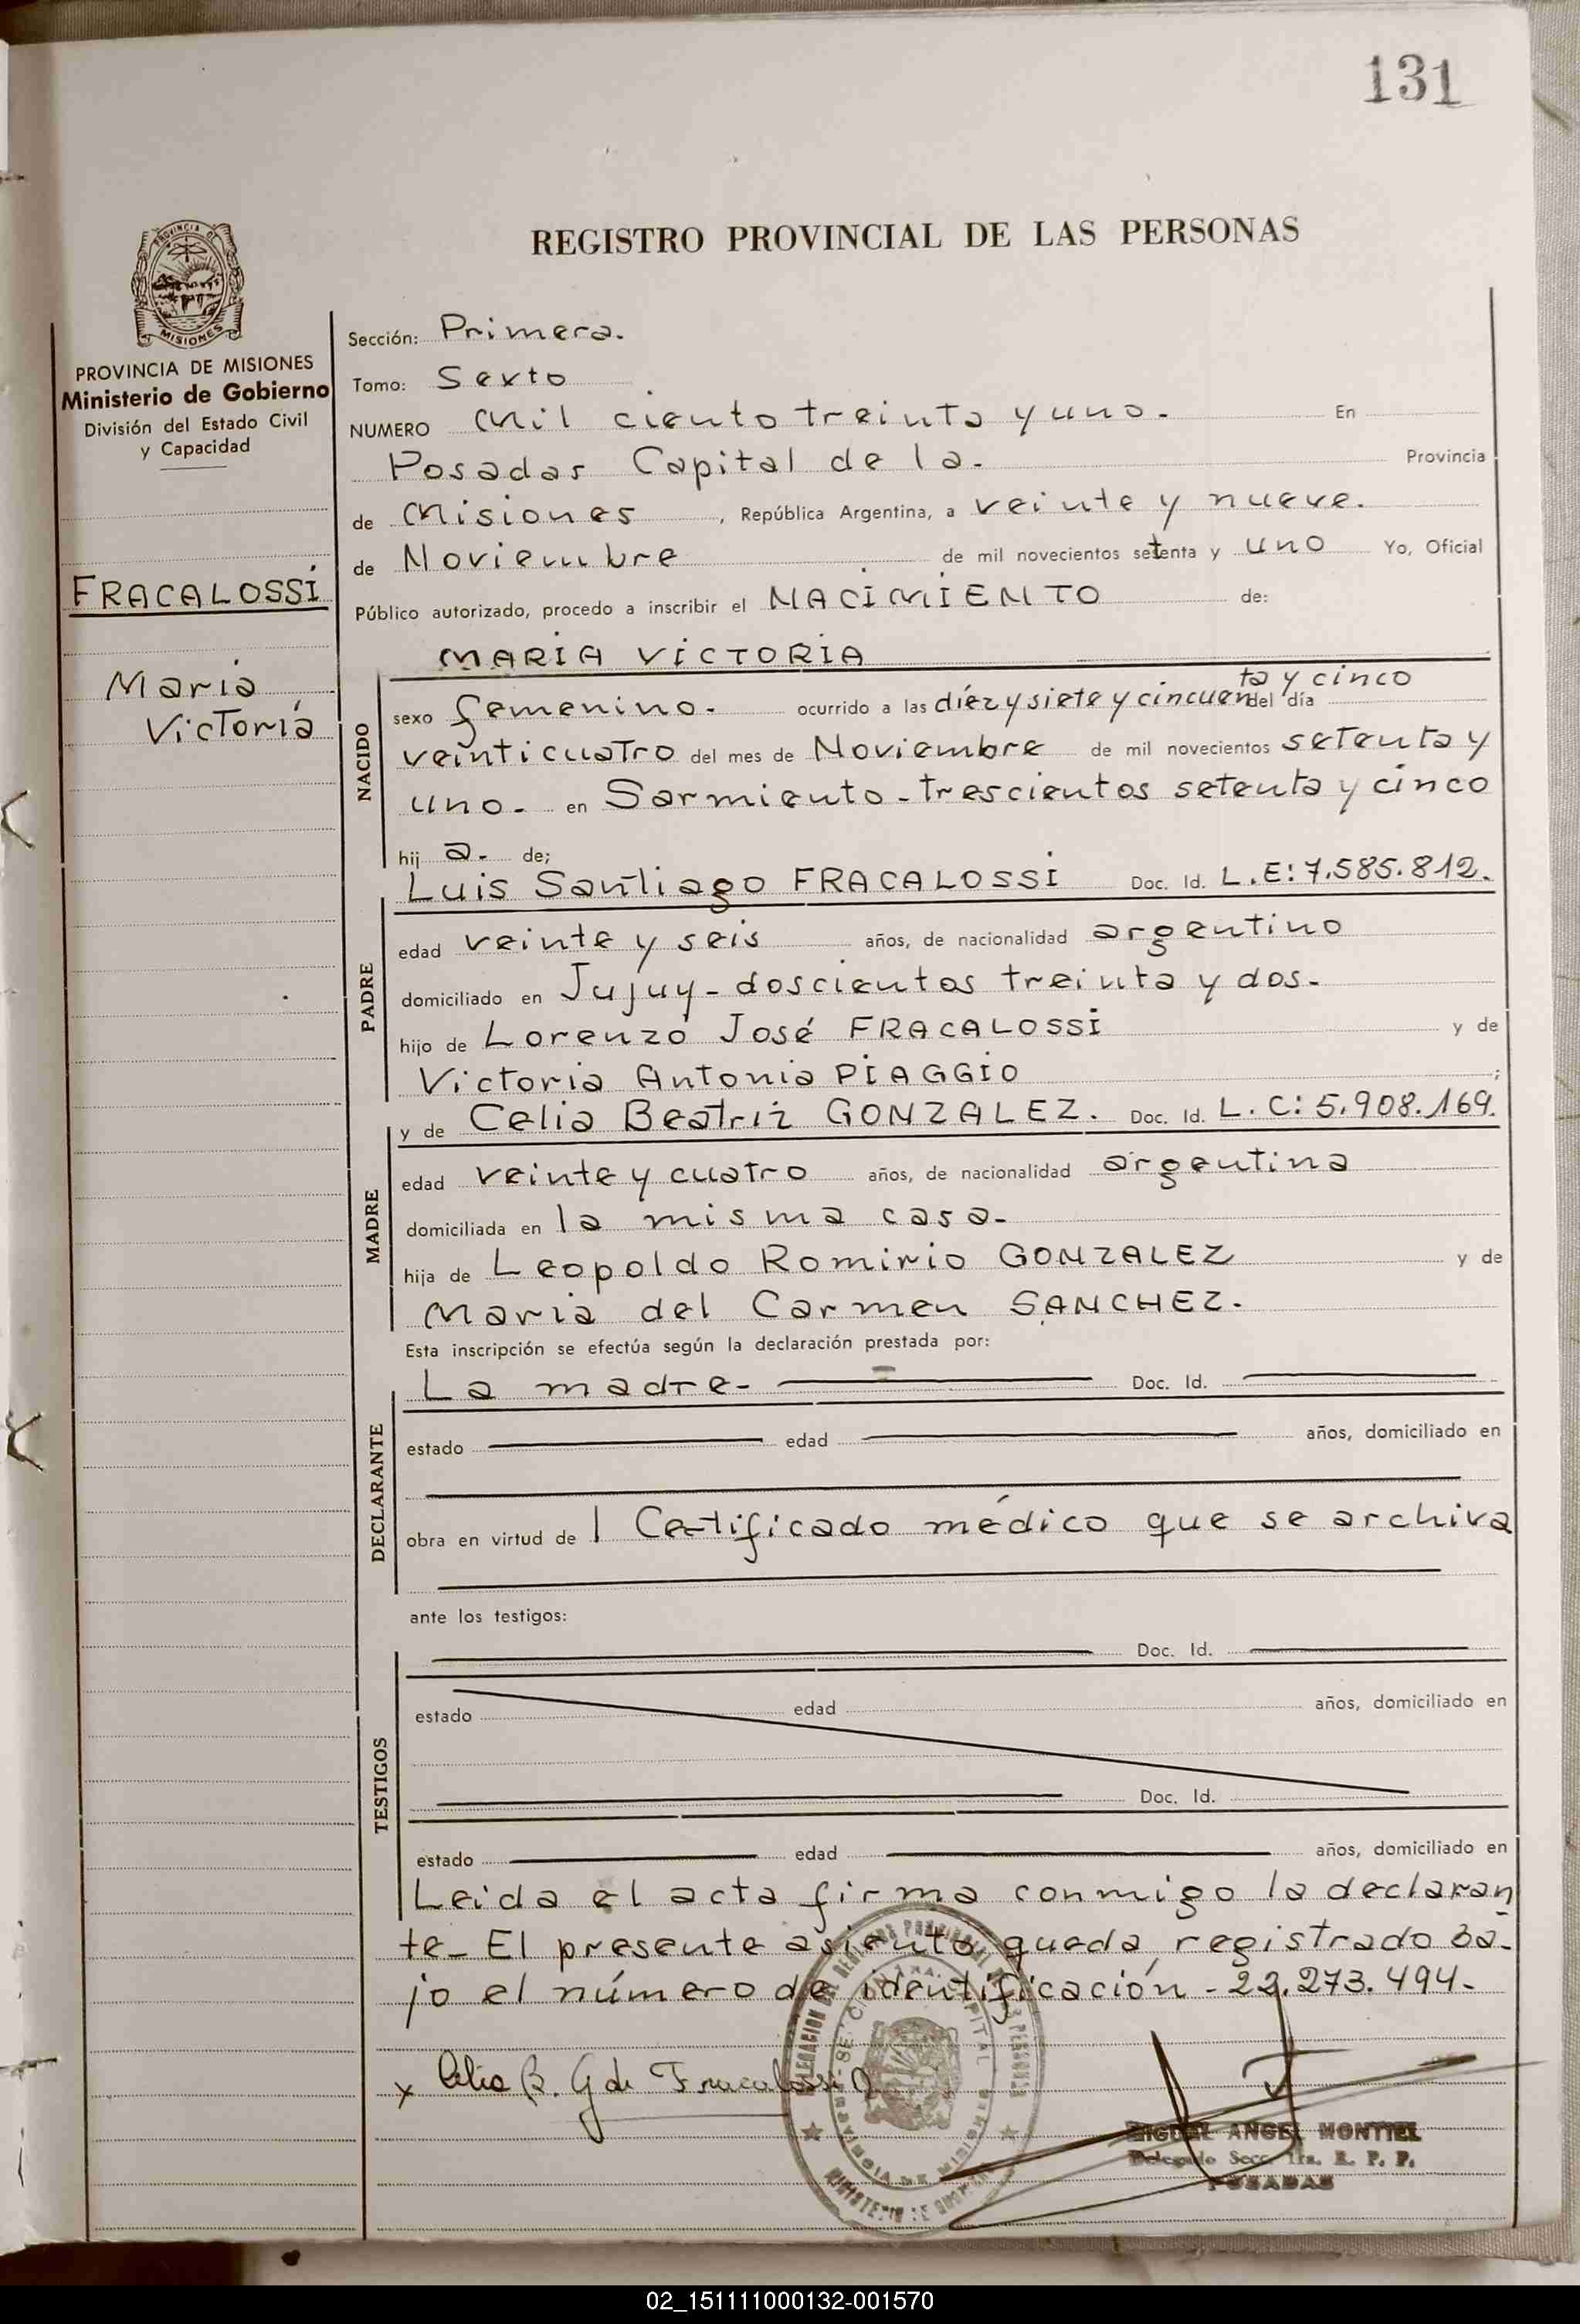 131
REGISTRO PROVINCIAL DE LAS PERSONAS
PROVINCIA DE MISIONES
Ministerio de Gobierno
División del Estado Civil
y Capacidad
FRACALOSSI
Maria
Victoria
Sección: Primera.
Tomo: Sexto
NUMERO Mil ciento treinta y uno. En
Posadas Capital de la. Provincia
de Misiones, República Argentina, a veinte y nueve.
de Noviembre de mil novecientos setenta y uno Yo, Oficial
Público autorizado, procedo a inscribir el NACIMIENTO de:
MARIA VICTORIA
NACIDO
ta y cinco
sexo femenino. ocurrido a las diéz y siete y cincuen del día
veinticuatro del mes de Noviembre de mil novecientos setenta y
uno. en Sarmiento - trescientos setenta y cinco
hij a. de;
PADRE
Luis Santiago FRACALOSSI Doc. Id. L.E: 7.585.812.
edad veinte y seis años, de nacionalidad argentino
domiciliado en Jujuy - doscientos treinta y dos.
hijo de Lorenzo José FRACALOSSI y de
Victoria Antonia PIAGGIO ;
MADRE
y de Celia Beatriz GONZALEZ. Doc. Id. L.C: 5.908.169.
edad veinte y cuatro años, de nacionalidad argentina
domiciliada en la misma casa.
hija de Leopoldo Romirio GONZALEZ y de
Maria del Carmen SANCHEZ.
Esta inscripción se efectúa según la declaración prestada por:
DECLARANTE
La madre - Doc. Id.
estado edad años, domiciliado en
obra en virtud de l Certificado médico que se archiva
ante los testigos:
TESTIGOS
Doc. Id.
estado edad años, domiciliado en
Doc. Id.
estado edad años, domiciliado en
Leida el acta firma conmigo la declaran
te - El presente asiento queda registrado ba-
jo el número de identificación - 22.273.494-
x Celia B. G de Fracalossi
MIGUEL ANGEL MONTIEL
Delegado Secc. 1ra. R. P. P.
POSADAS
02_151111000132-001570